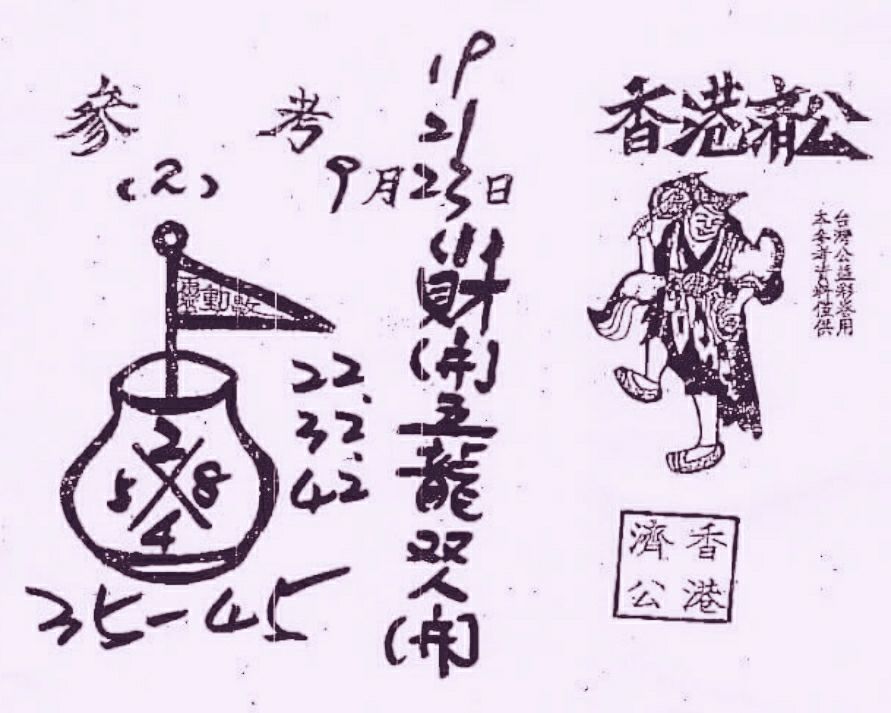 香港濟公
參考
(2)
19
21
9月23日
財
五龍
双人
22.
32.
42.
2
5 8
4
35-45
台灣公益彩券用
本參考資料僅供
香港
濟公